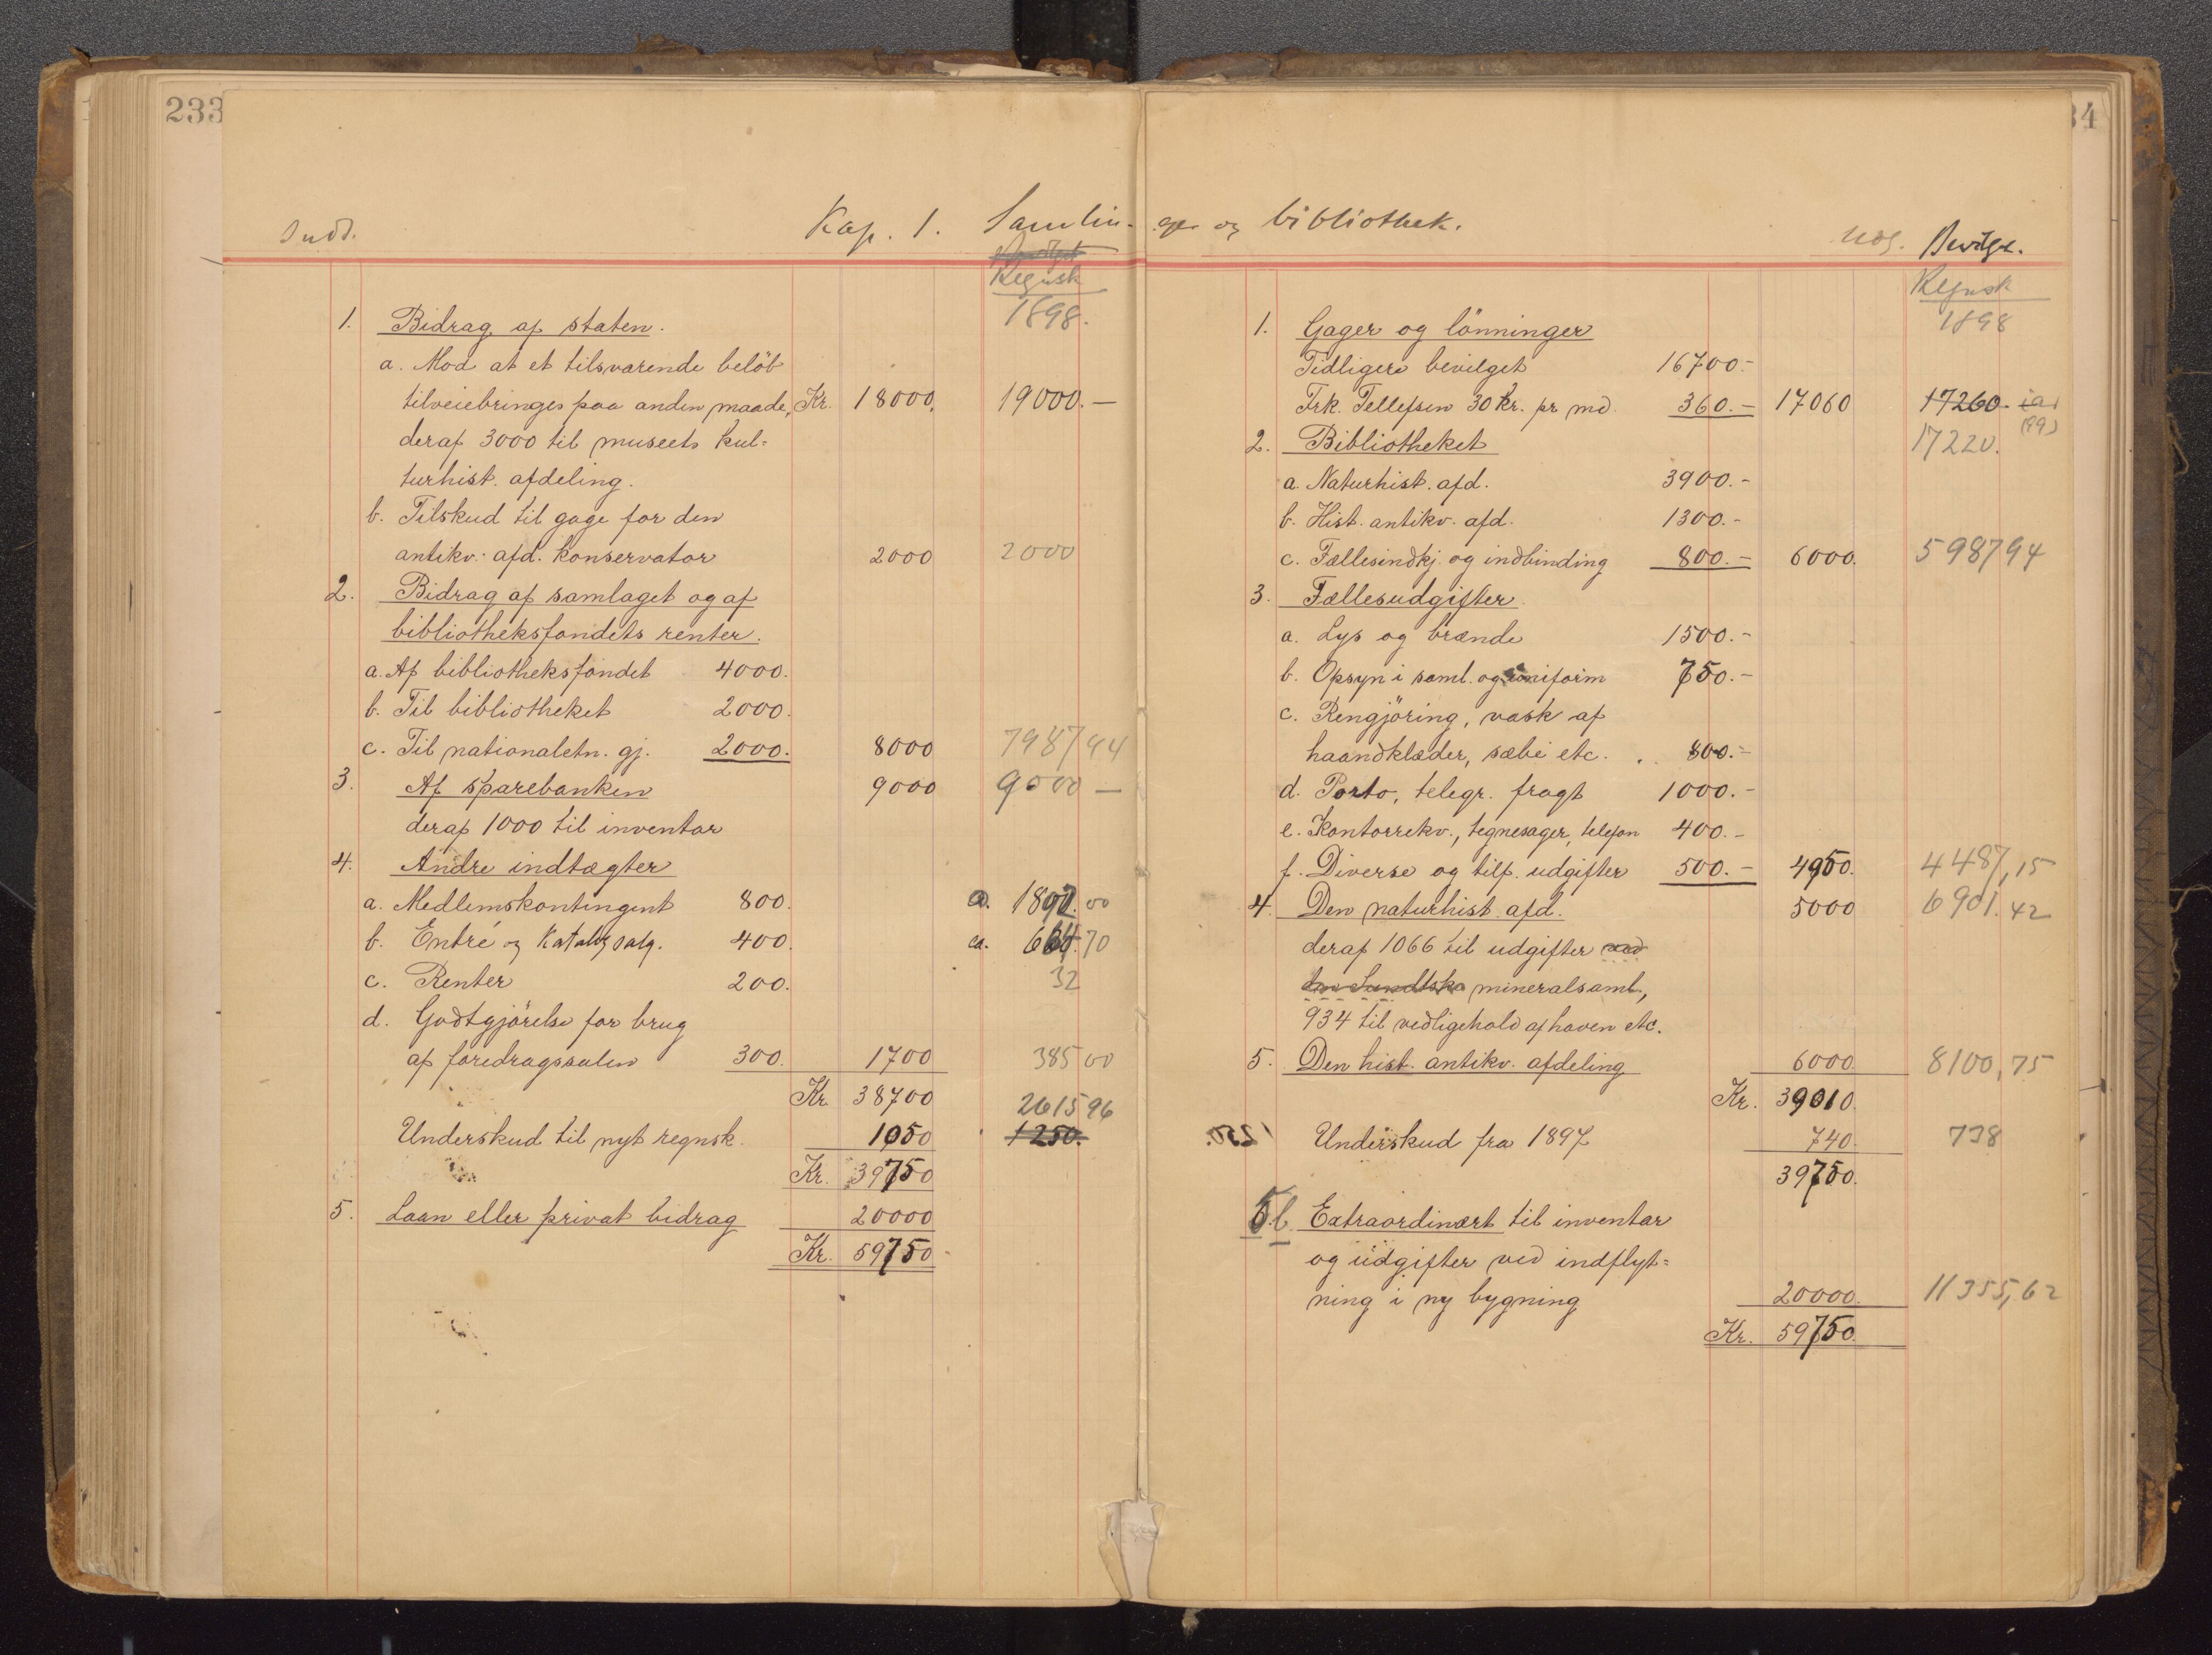 233
Kap. 1. Samlin-
Indt.
Regnsk
1898.
1. Bidrag af staten.
a. Mod at et tilsvarende beløb
tilveiebringes paa anden maade, Kr. 18000, 19000.—
deraf 3000 til museets kul=
turhist. afdeling.
b. Tilskud til gage for den
antikv. afd. konservator 2000 2000
2. Bidrag af samlaget og af
bibliotheksfondets renter.
a. Af bibliotheksfondet 4000.
b. Til bibliotheket 2000.
c. Til nationaletn. gj. 2000. 8000 7987 94
3. Af sparebanken 9000 9000 —
deraf 1000 til inventar
4. Andre indtægter
a. Medlemskontingent 800.
b. Entré og Katalogsalg. 400. ca. 70
c. Renter 200. 32
d. Godtgjörelse for brug
af foredragssalen 300. 1700 385 00
Kr. 38700 2615 96
Underskud til nyt regnsk. 1050 1250.
Kr. 39750
5. Laan eller privat bidrag 20000
Kr. 59750
34
ger og bibliothek.
Udg. Bevilge.
Regnsk
1898
1. Gager og lönninger
Tidligere bevilget 16700.-
Frk. Tellefsen 30 kr. pr md. 360.- 17060 17260. (99)
17220.
2. Bibliotheket
a. Naturhist. afd. 3900.-
b. Hist. antikv. afd. 1300.-
c. Fællesindkj. og indbinding 800.- 6000. 5987 94
3. Fællesudgifter.
a. Lys og brænde 1500.-
b. Opsyn i saml. og uniform 750.-
c. Rengjöring, vask af
haandklæder, sæbe etc. 800.-
d. Porto, telegr. fragt 1000.-
e. Kontorrekv., tegnesager, telefon 400.-
f. Diverse og tilf. udgifter 500.- 4950. 4487,15
4. Den naturhist. afd. 5000 6901.42
deraf 1066 til udgifter ved
den Lundtske mineralsaml.,
934 til vedligehold af haven etc.
5. Den hist. antikv. afdeling 6000. 8100,75
Kr. 39010.
Underskud fra 1897 740. 738
39750.
5.b. Extraordinært til inventar
og udgifter ved indflyt=
ning i ny bygning 20000. 11355,62
Kr. 59750.